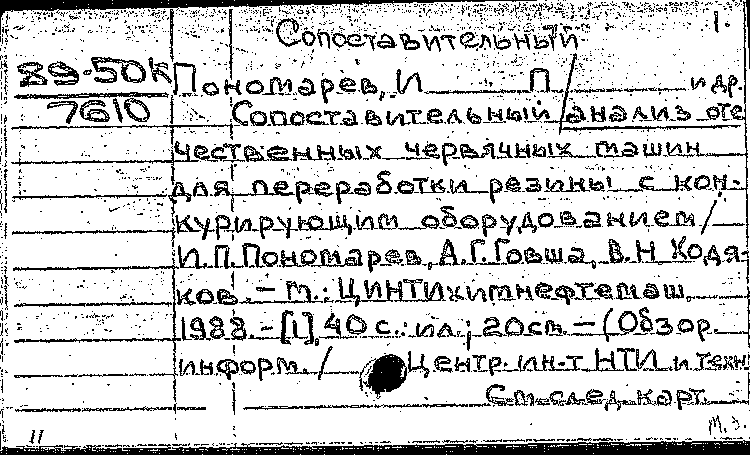 1.
Сопоставительный
89-50К
7610
Пономарев, И П и др.
Сопоставительный / анализ оте
чественных червячных машин
для переработки резины с кон-
курирующим оборудованием /
И.П. Пономарев, А.Г. Говша, В.Н Ходя-
ков. – М.: ЦИНТИхимнефтемаш,
1988. – [1], 40 с.: ил.; 20 см – (Обзор.
информ. / Центр. ин-т НТИ и техн
См. след. карт.
11
М. З.